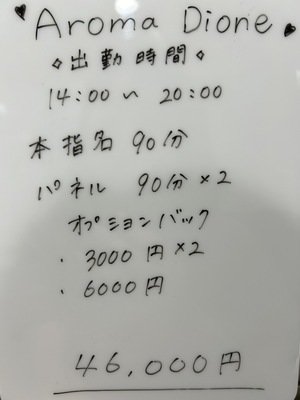 Aroma Dione
◇出勤時間◇
14:00〜20:00
本指名 90分
パネル 90分×2
オプションバック
・3000円×2
・6000円
46,000円